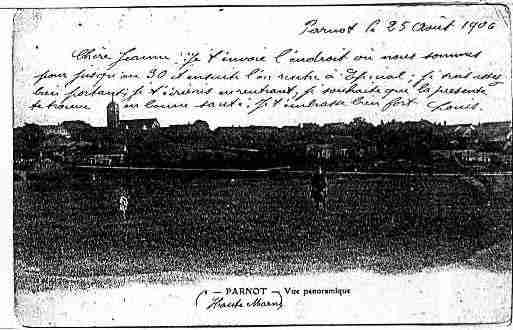 Parnot le 25 Août 1906
Chère Jeanne : Je t'envoie l'endroit où nous sommes
pour jusqu'au 30 et ensuite l'on rentre à Epinal ; je vais assez
bien portant, je t'écrirais en rentrant, je souhaite que la présente
te trouve en bonne santé ; Je t'embrasse bien fort. Louis.
— PARNOT — Vue panoramique
(Haute Marne)